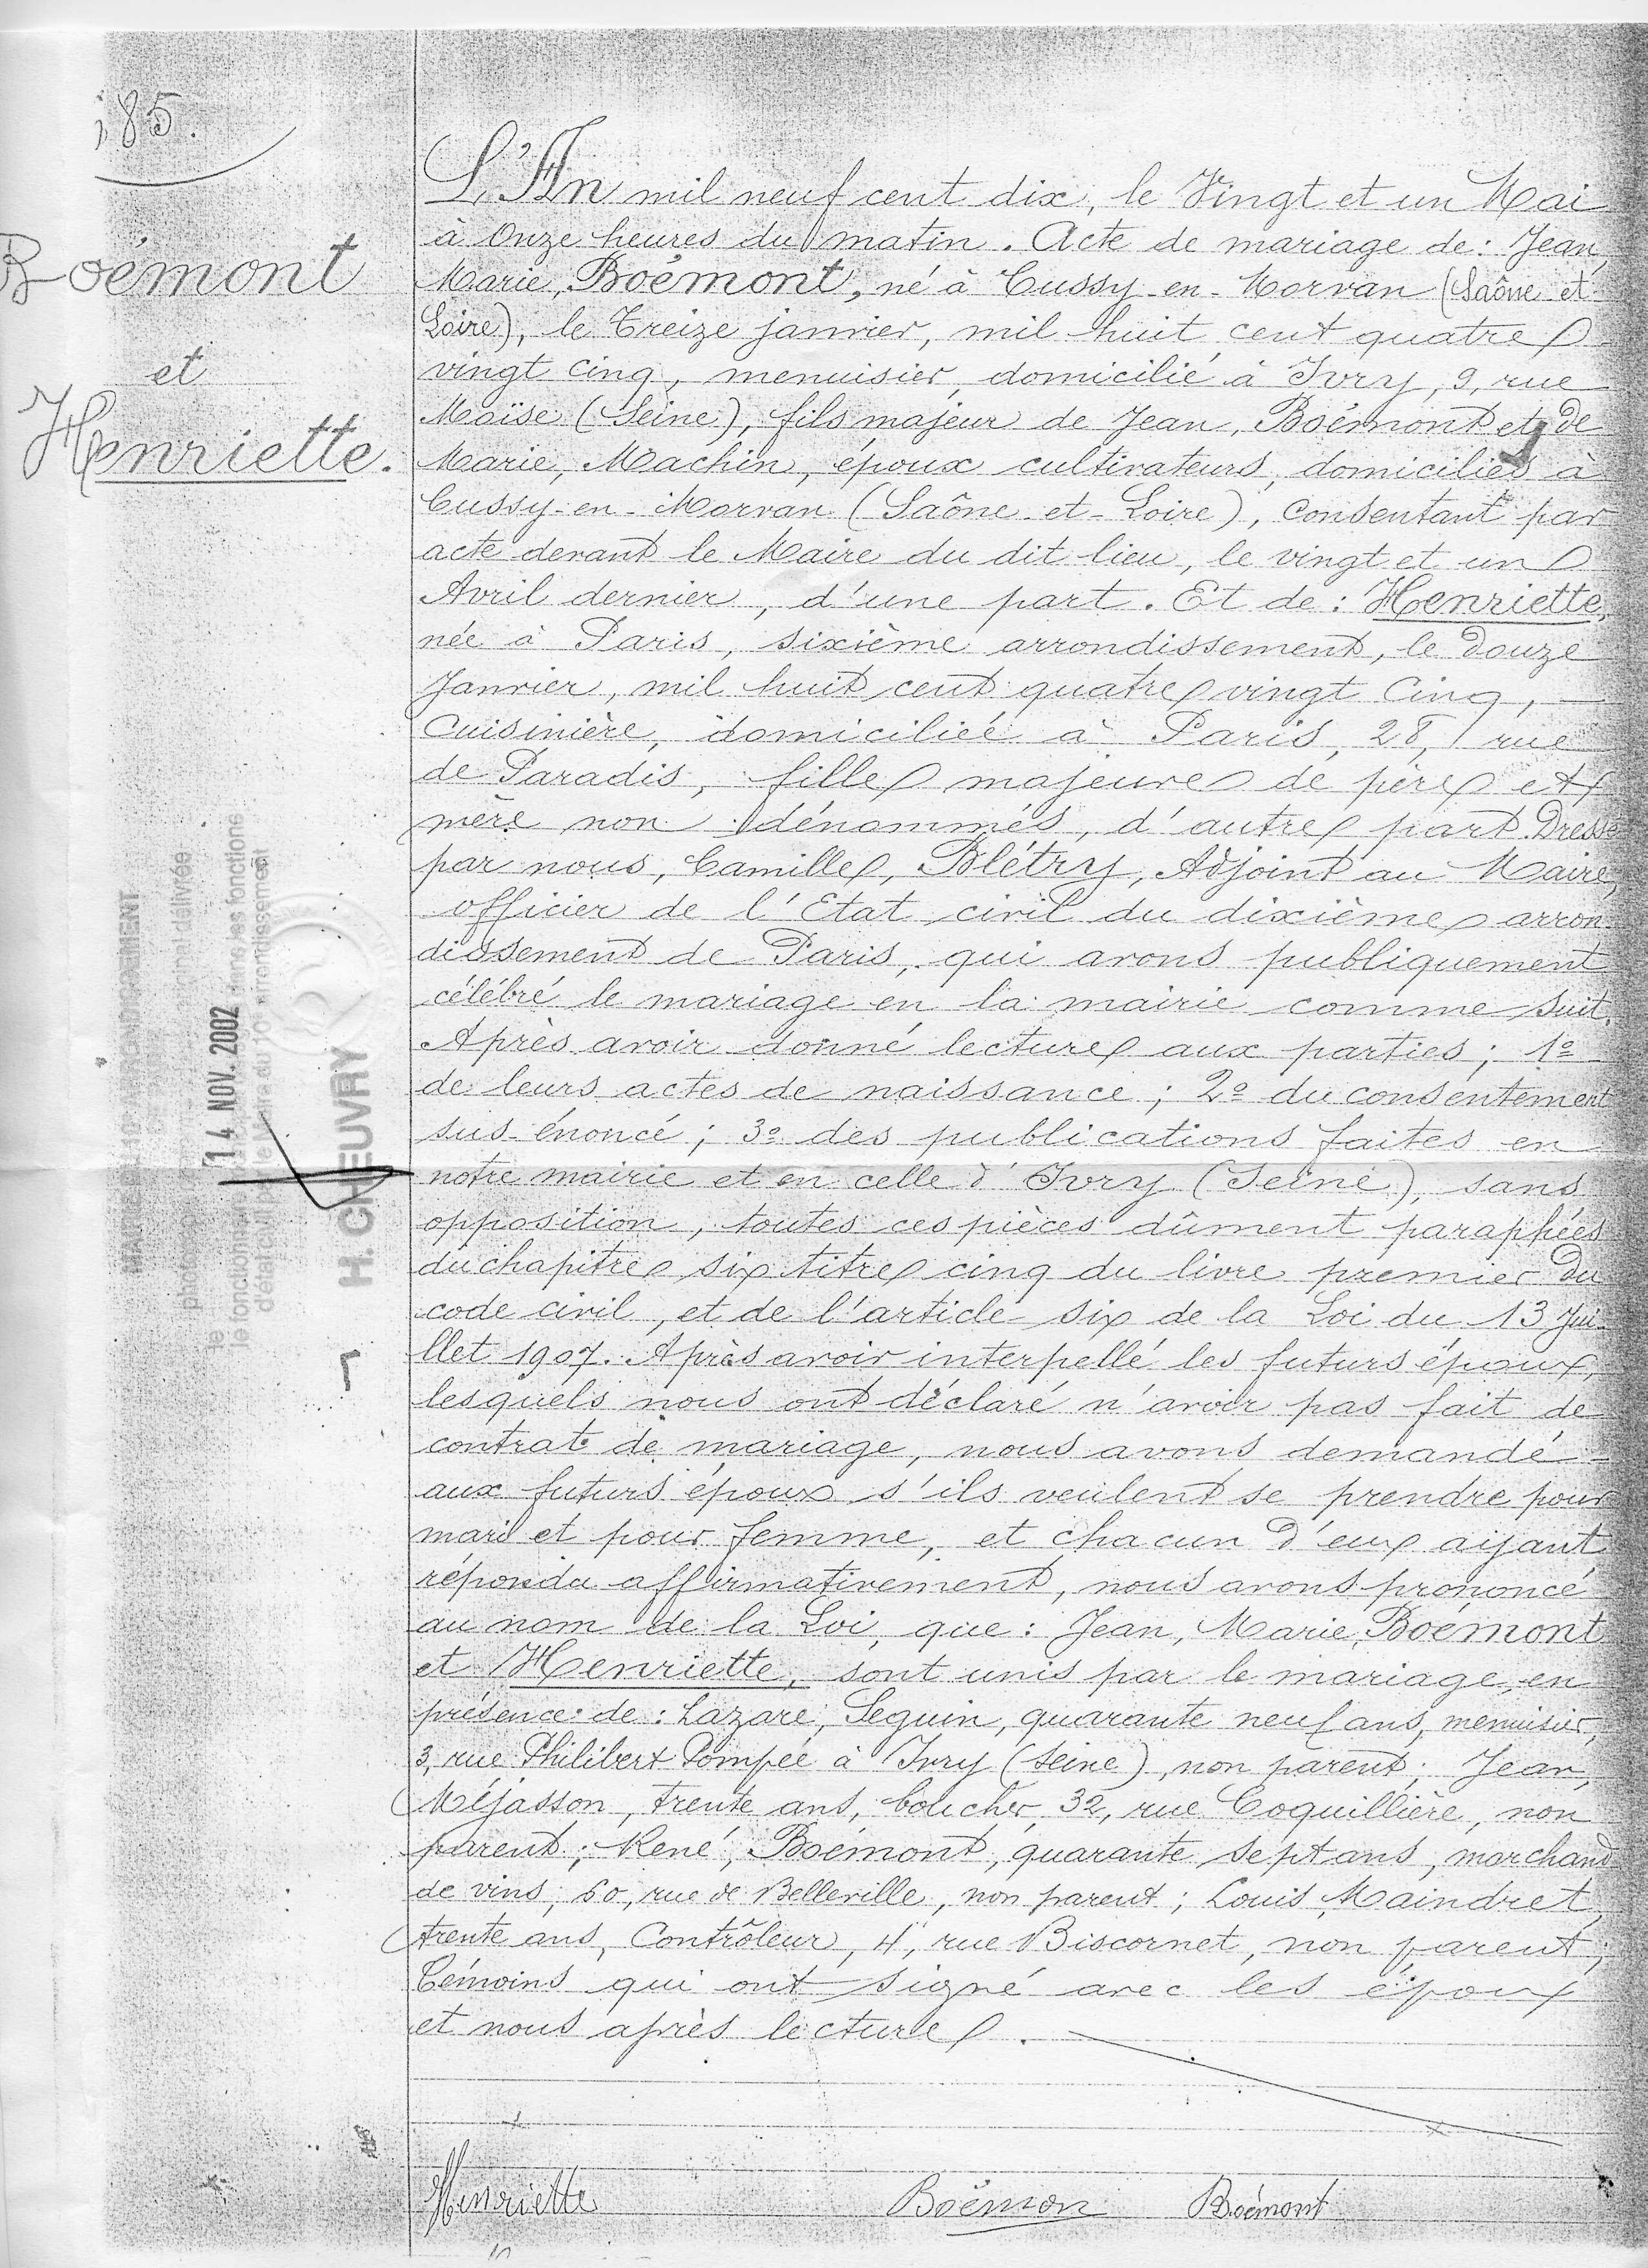 185.
Boémont
et
Henriette.
L'An mil neuf cent dix, le Vingt et un Mai
à Onze heures du matin. Acte de mariage de : Jean,
Marie, Boémont, né à Cussy-en-Morvan (Saône et
Loire), le Treize janvier, mil huit cent quatre
vingt cinq, menuisier, domicilié à Ivry, 9, rue
Moïse (Seine), fils majeur de Jean, Boémont et de
Marie, Machin, époux cultivateurs, domiciliés à
Cussy-en-Morvan (Saône-et-Loire), consentant par
acte devant le Maire du dit lieu, le vingt et un
Avril dernier, d'une part. Et de : Henriette,
née à Paris, sixième arrondissement, le douze
Janvier, mil huit cent quatre vingt cinq, —
cuisinière, domiciliée à Paris, 28, rue
de Paradis, fille majeure de père et
mère non dénommés, d'autre part. Dressé
par nous, Camille, Blétry, Adjoint au Maire,
officier de l'Etat civil du dixième arron-
dissement de Paris, qui avons publiquement
célébré le mariage en la mairie comme suit.
Après avoir donné lecture aux parties ; 1º
de leurs actes de naissance ; 2º du consentement
sus-énoncé ; 3º des publications faites en
notre mairie et en celle d'Ivry (Seine), sans
opposition, toutes ces pièces dûment paraphées
du chapitre six titre cinq du livre premier du
code civil, et de l'article six de la Loi du 13 Jui-
llet 1907. Après avoir interpellé les futurs époux,
lesquels nous ont déclaré n'avoir pas fait de
contrat de mariage, nous avons demandé -
aux futurs époux s'ils veulent se prendre pour
mari et pour femme, et chacun d'eux aijant
répondu affirmativement, nous avons prononcé
au nom de la Loi, que : Jean, Marie, Boémont
et Henriette, sont unis par le mariage, en
présence de : Lazare, Seguin, quarante neuf ans, menuisier,
3, rue Philibert Pompée à Ivry (Seine), non parent ; Jean,
Méjasson, trente ans, boucher, 32, rue Coquillière, non
parent ; René, Boémont, quarante sept ans, marchand
de vins, 60, rue de Belleville, non parent ; Louis, Maindret,
trente ans, Contrôleur, 4, rue Biscornet, non parent ;
Témoins qui ont signé avec les époux
et nous après lecture.
Henriette Boémon Boémont
14 NOV. 2002
H. CHEUVRY